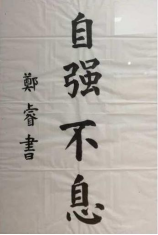 自强不息
鄭睿書